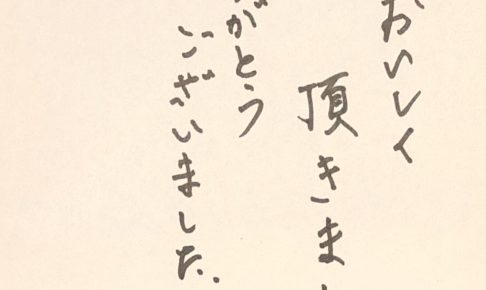 おいしく
頂きま
がとう
ございました.